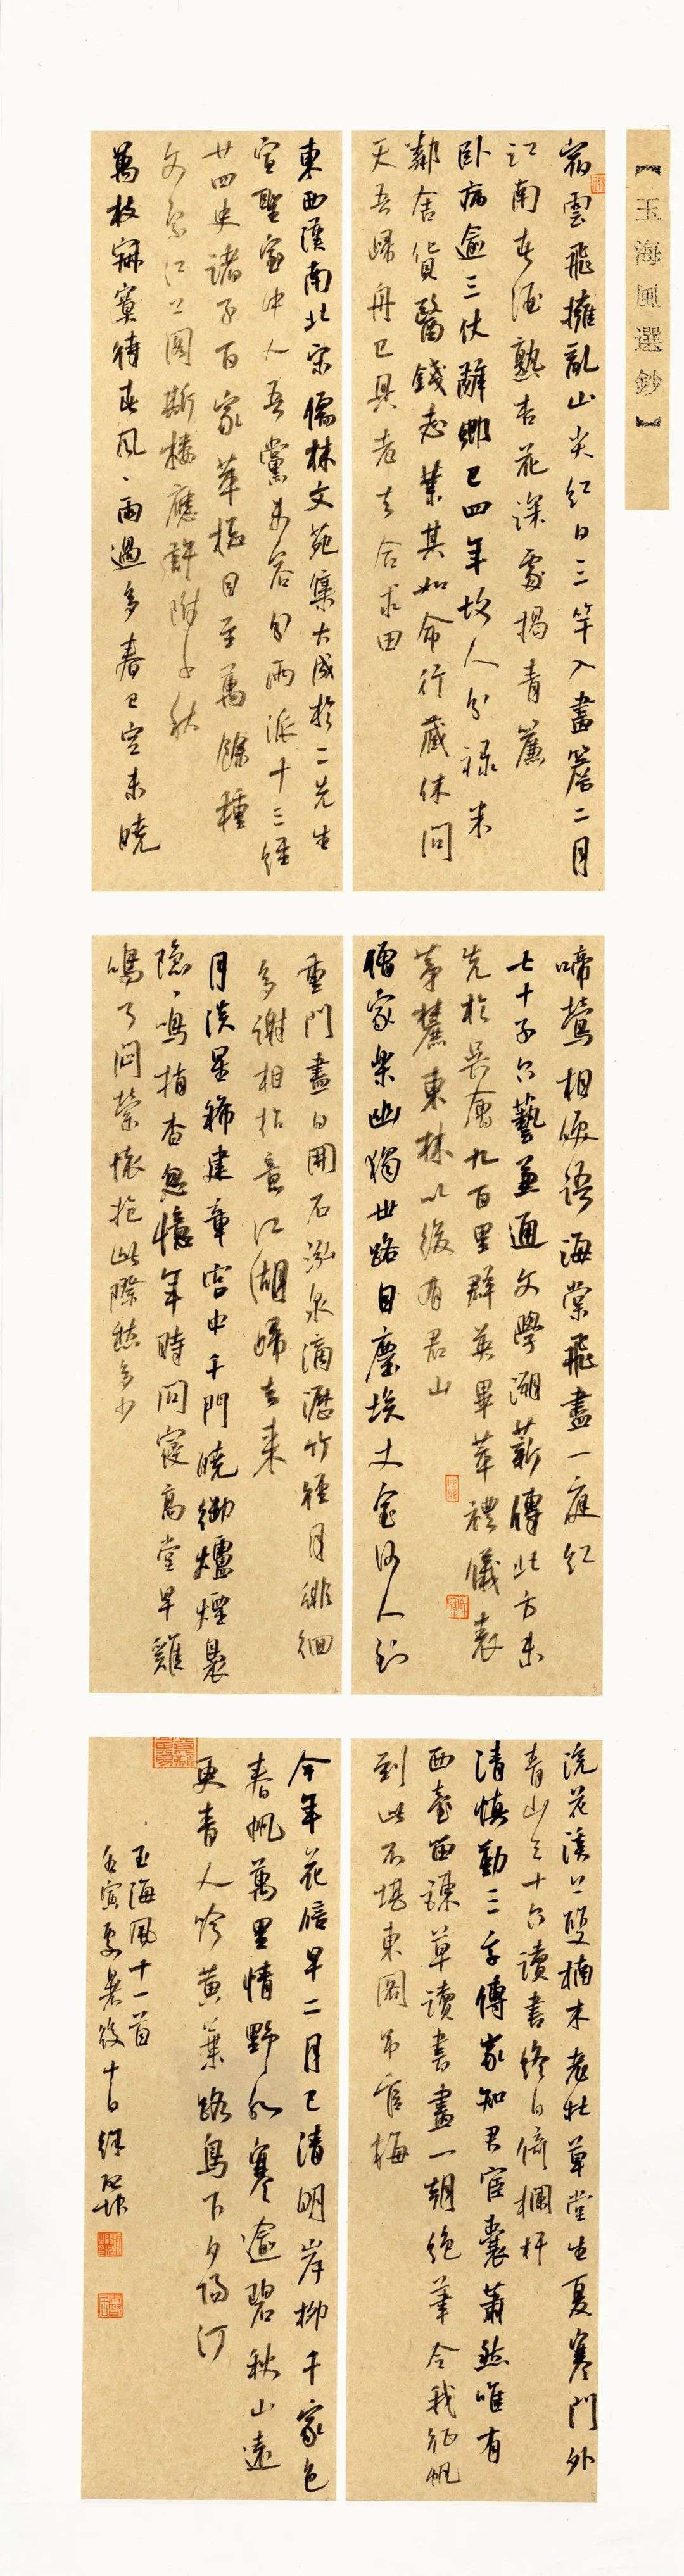 【玉海風選鈔】
宿雲飛擁亂山尖紅日三竿入畫簷二月
江南春酒熟杏花深處揭青簾
卧病逾三伏辭鄉已四年故人分祿米
鄰舍貨醫錢志業其如命行藏休問
天吾歸舟已具老去合求田
東西漢南北宋儒林文苑集大成於二先生
宣聖室中人吾黨未容分兩派十三經
廿四史諸子百家萃極目至萬餘種
文宗江上閣斯樓應許附千秋
萬枝寂寞待春風風雨過多春已空未曉
啼鶯相喚語海棠飛盡一庭紅
七十子六藝兼通文學溯薪傳北方未
先於吳會九百里群英畢萃禮儀表
茅麓東林以後有君山
僧家樂幽獨世路自塵埃丈室何人到
重門盡日開石泓泉滴瀝竹徑月徘徊
多謝相招意江湖歸去來
月淡星稀建章宮中千門曉御爐煙裊
隱隱鳴梢杳忽憶年時問寢高堂早雞
鳴了悶縈懷抱此際愁多少
浣花溪上雙楠木老杜草堂生夏寒門外
青山三十六讀書終日倚欄杆
清慎勤三字傳家知君宦囊蕭然唯有
西臺留諫草讀書畫一朝絕筆令我征帆
到此不堪東閣弔官梅
今年花信早二月已清明岸柳千家色
春帆萬里情野水寒逾碧秋山遠
更青人吟黃葉路鳥下夕陽汀
玉海風十一首
壬寅處暑後十日